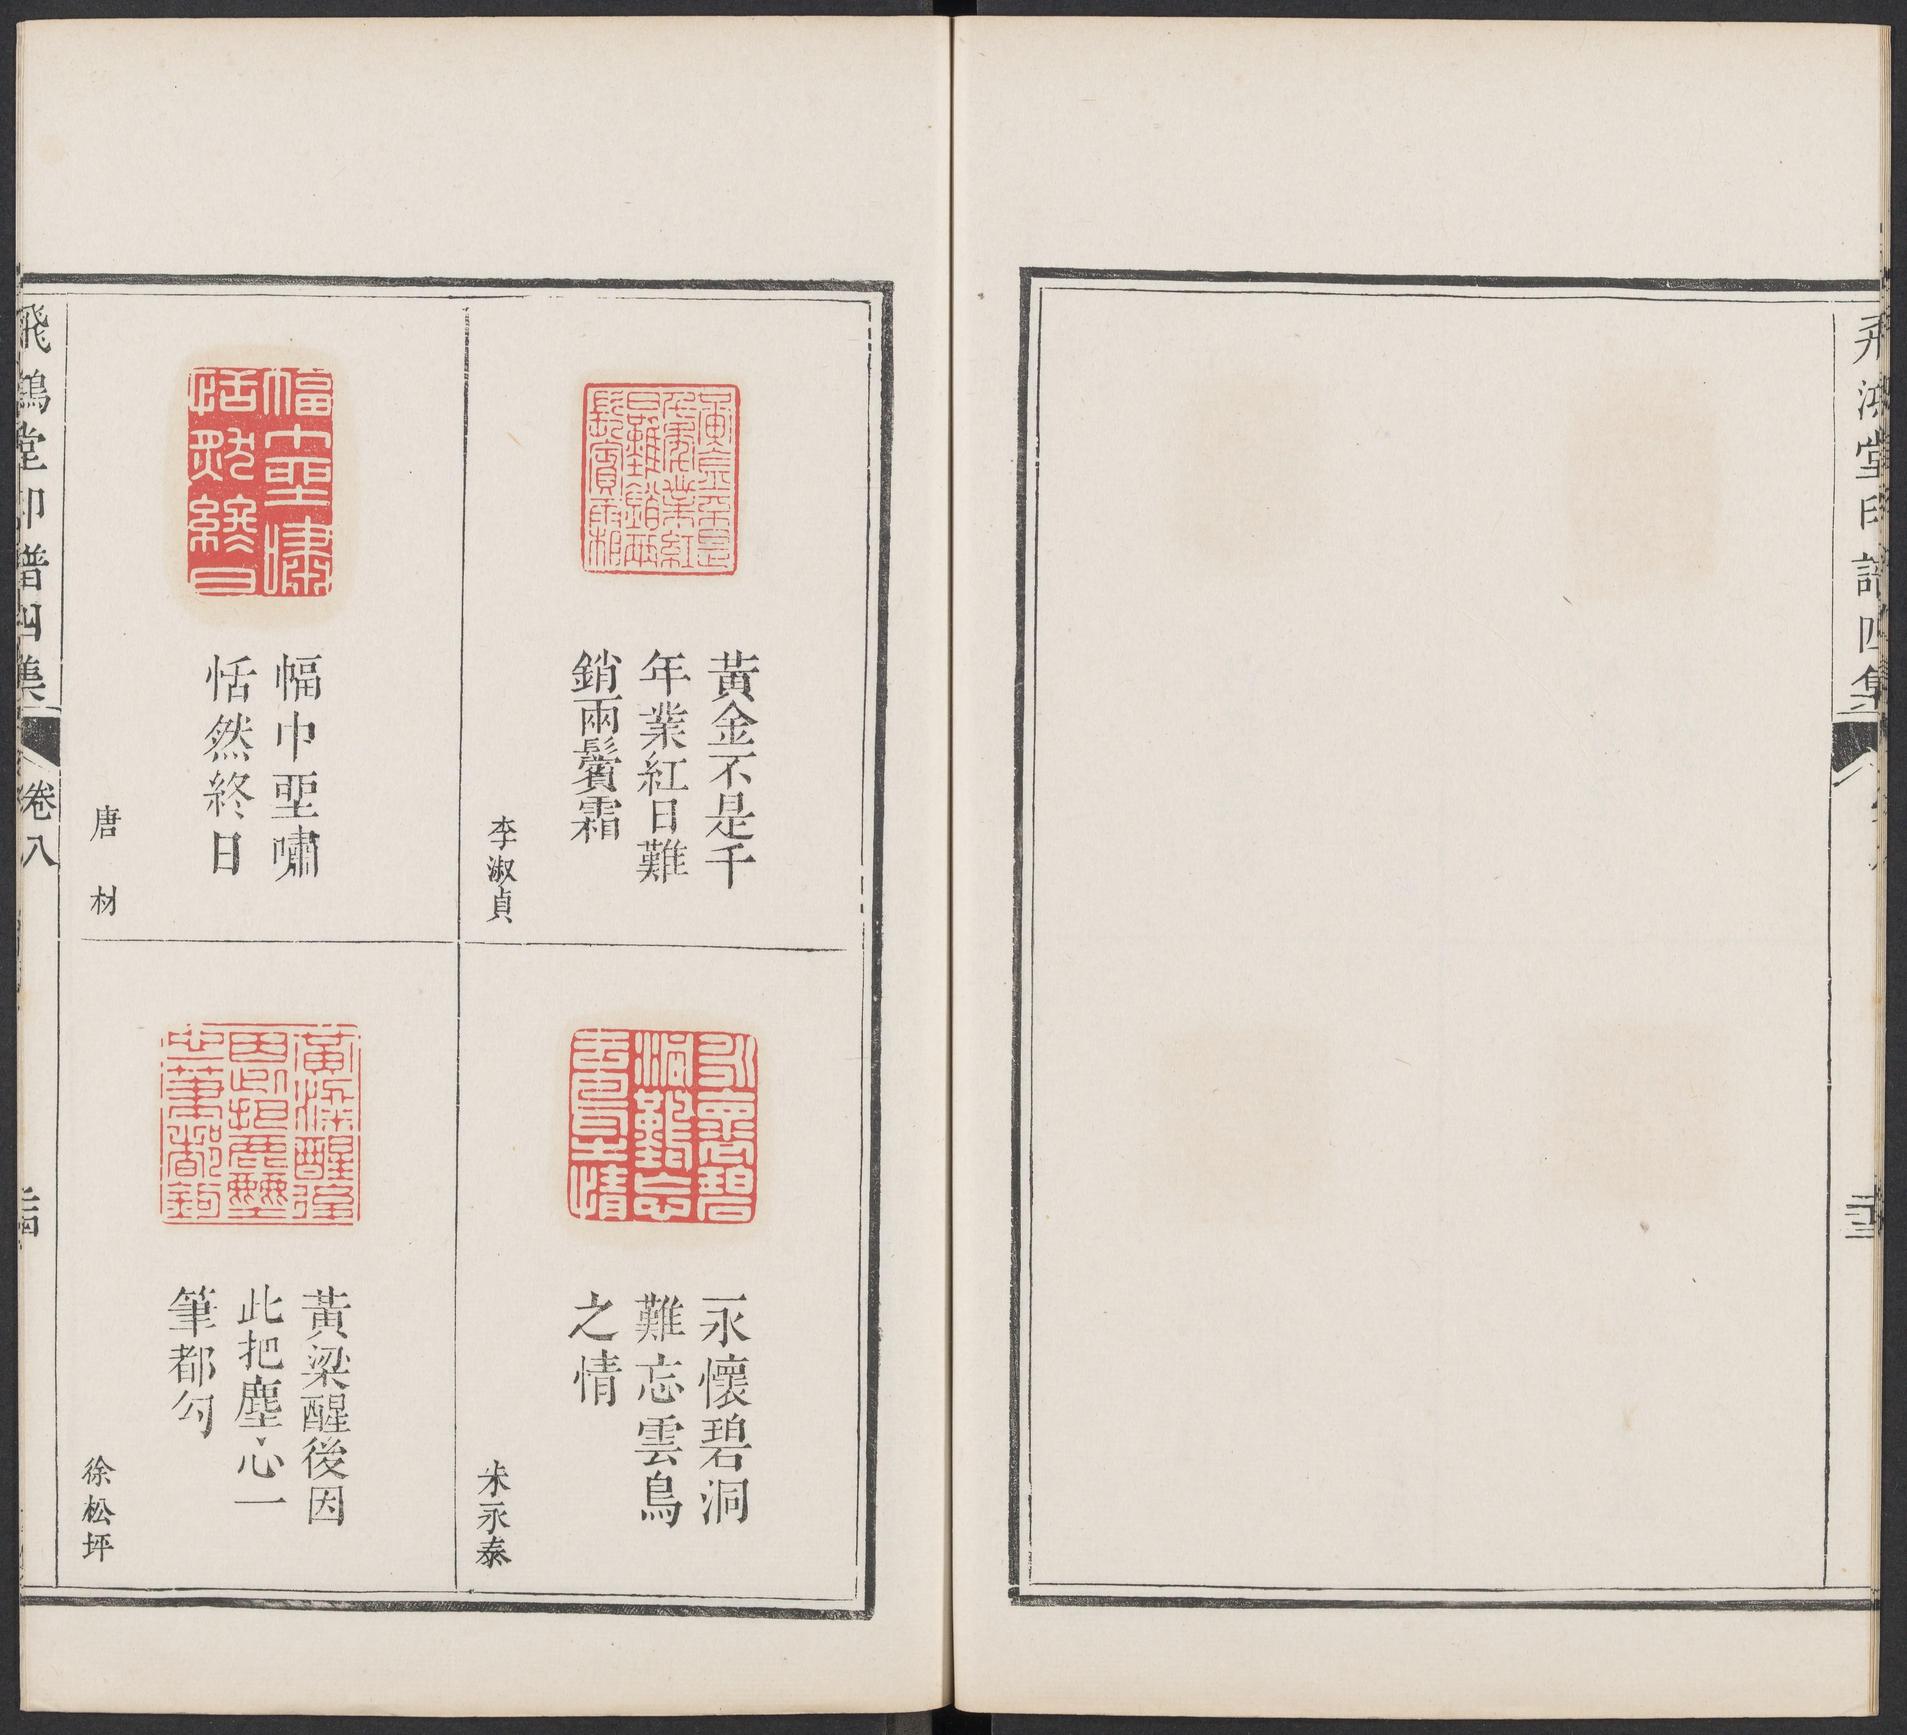 飛鴻堂印譜四集
黃金不是千
年業紅日難
銷兩鬢霜
李淑貞
永懷碧洞
難忘雲鳥
之情
朱永泰
幅巾坙嘯
恬然終日
唐材
黃粱醒後因
此把塵心一
筆都勾
徐松坪
飛鴻堂印譜四集
卷八